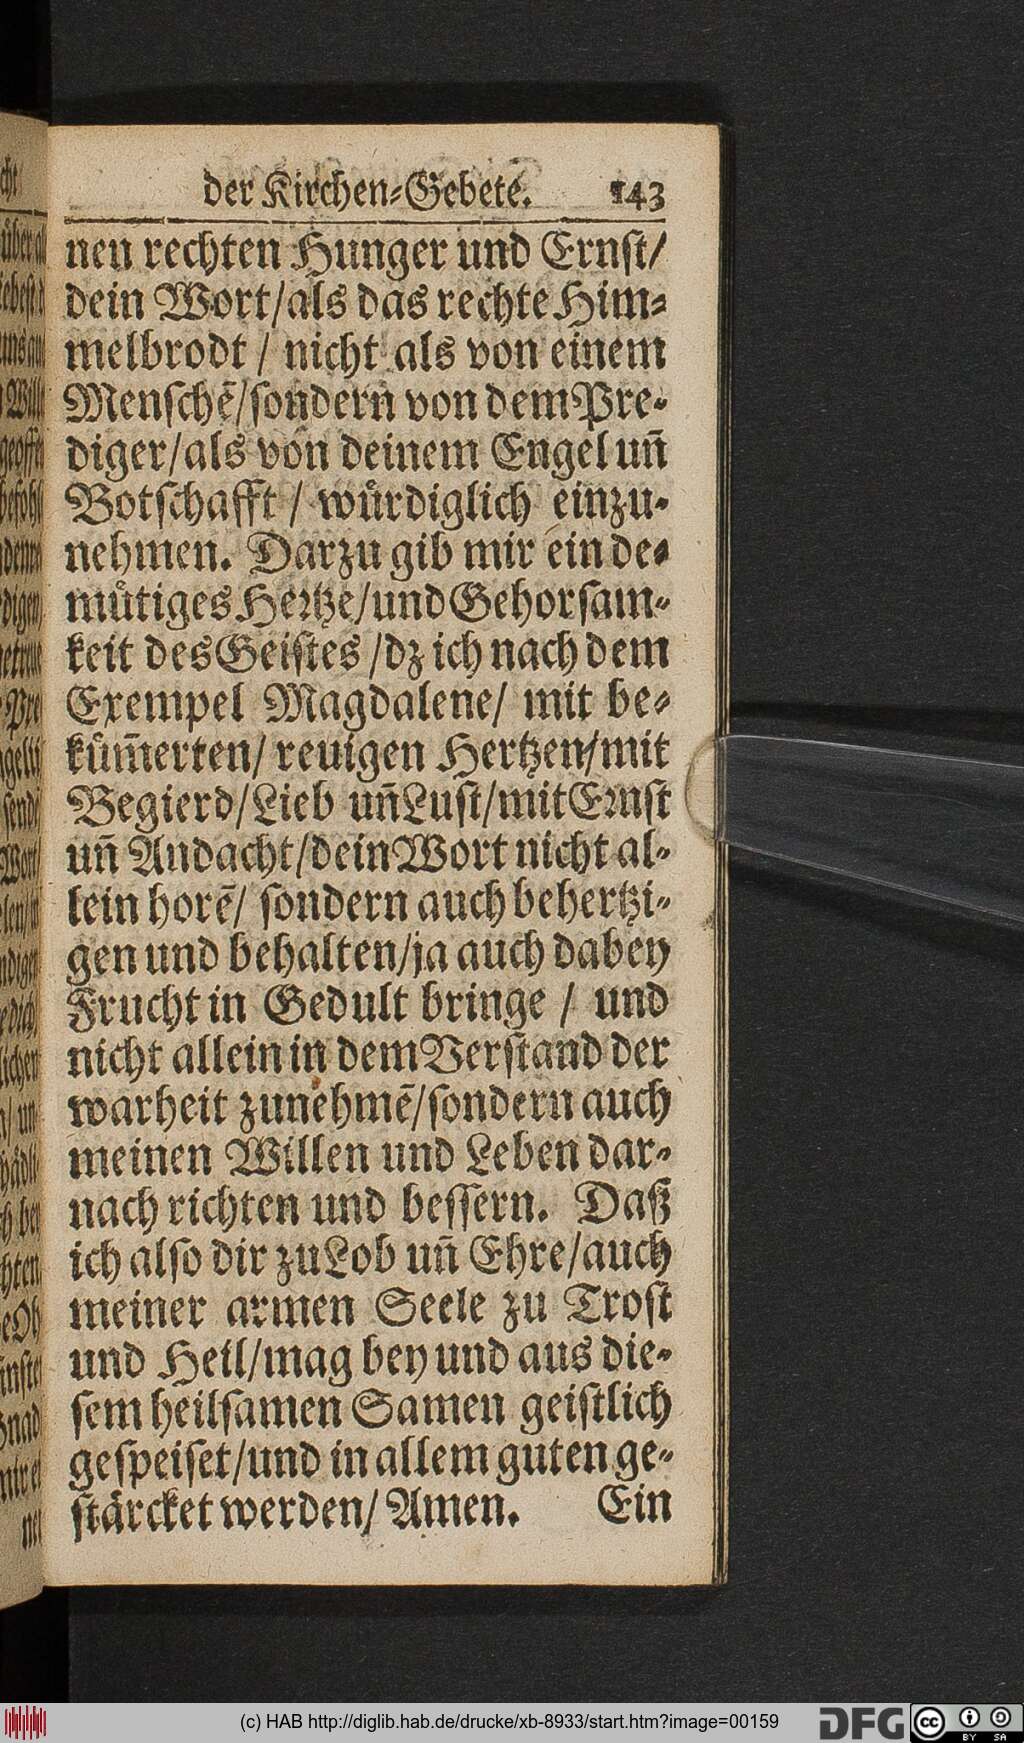 der Kirchen-Gebete. 143
nen rechten Hunger und Ernst/
dein Wort/als das rechte Him-
melbrodt / nicht als von einem
Menschẽ/sondern von dem Pre-
diger/als von deinem Engel uñ
Botschafft / wuͤrdiglich einzu-
nehmen. Darzu gib mir ein de-
muͤtiges Hertze/und Gehorsam-
keit des Geistes /dz ich nach dem
Exempel Magdalene/ mit be-
kuͤm̃erten/ reuigen Hertzen/mit
Begierd/Lieb uñ Lust/mit Ernst
uñ Andacht/dein Wort nicht al-
lein horẽ/ sondern auch behertzi-
gen und behalten/ja auch dabey
Frucht in Gedult bringe / und
nicht allein in dem Verstand der
warheit zunehmẽ/sondern auch
meinen Willen und Leben dar-
nach richten und bessern. Daß
ich also dir zu Lob uñ Ehre/auch
meiner armen Seele zu Trost
und Heil/mag bey und aus die-
sem heilsamen Samen geistlich
gespeiset/und in allem guten ge-
staͤrcket werden/ Amen. Ein
(c) HAB http://diglib.hab.de/drucke/xb-8933/start.htm?image=00159
DFG
cc BY SA